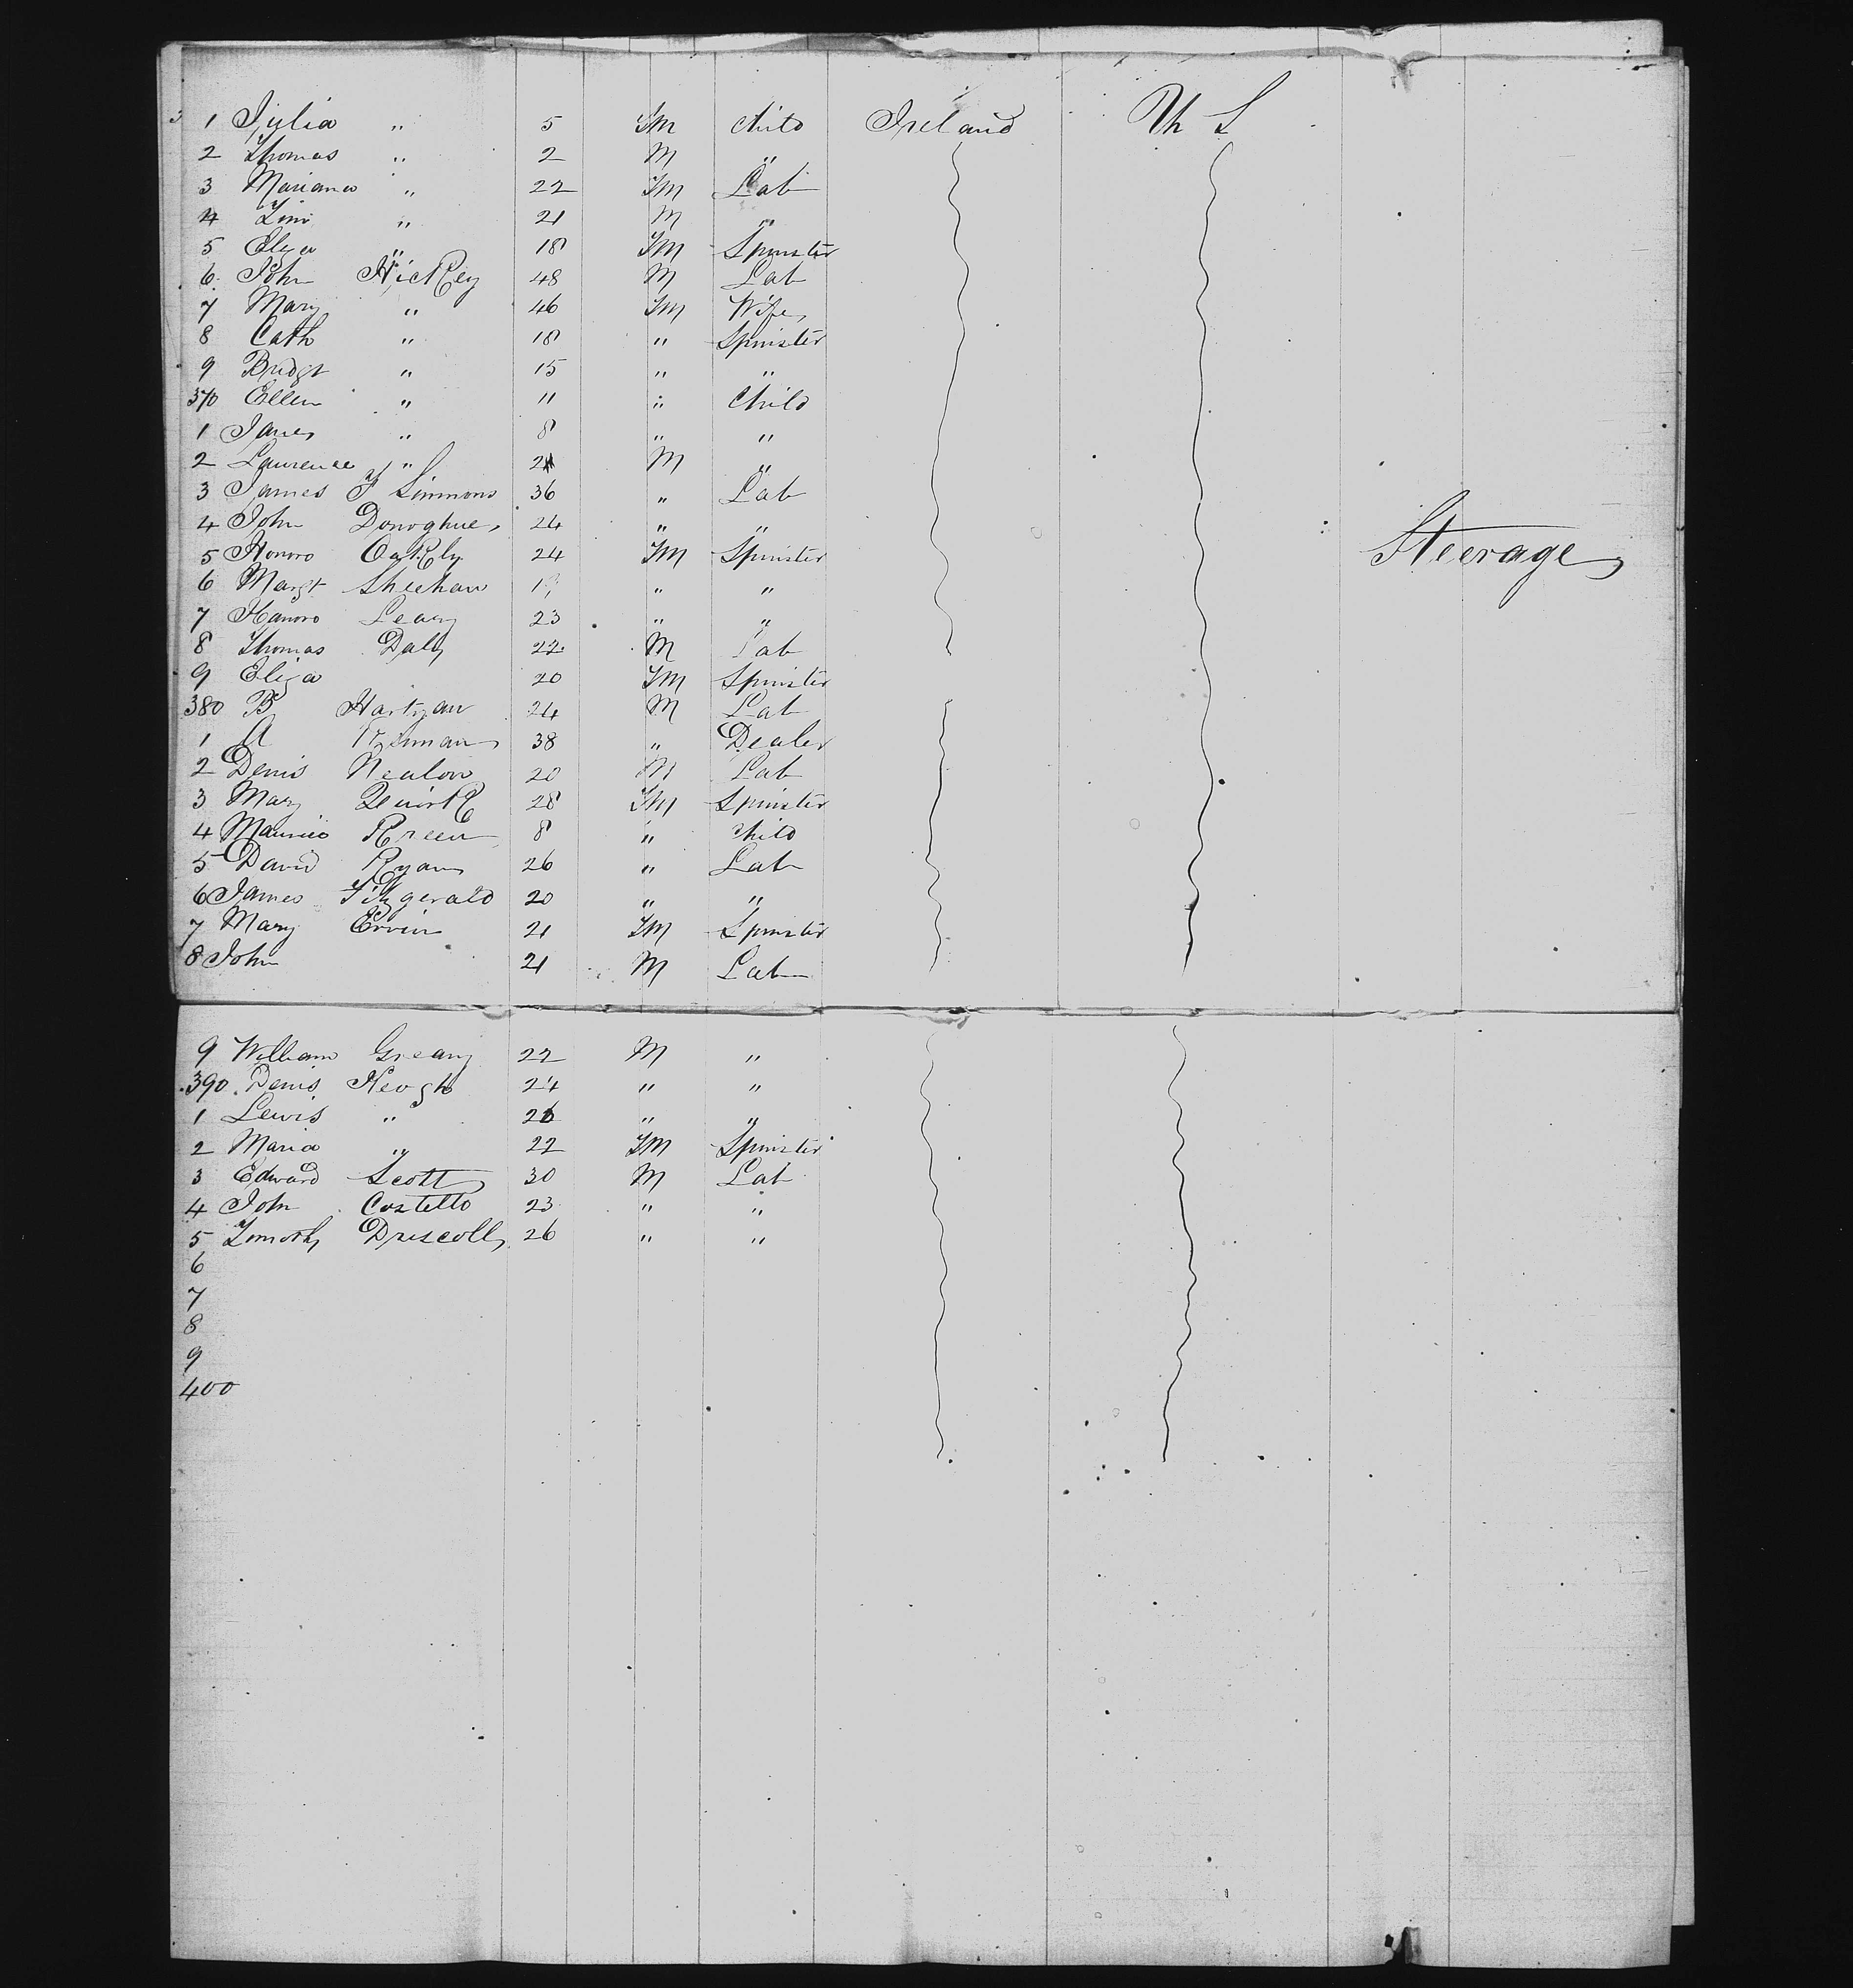 1 Julia " 5 Fm Child Ireland U S
2 Thomas " 2 M "
3 " 22 Fm Lab
4 Tim " 21 M "
5 Eliza " 18 Fm Spinster
6 John Hickey 48 M Lab
7 Mary " 46 Fm Wife
8 Cath " 18 " Spinster
9 Bridgt " 15 " "
370 Ellen " 11 " Child
1 " 8 " "
2 Laurence " M "
3 James F Simmons 36 " Lab
4 John Donoghue 24 " "
5 Honoro 24 Fm Spinster
6 Margt Sheehan " "
7 Hanoro Leary 23 " "
8 Thomas Daly 22 M Lab
9 Eliza 20 Fm Spinster
380 B Hartgan 24 M Lab
1 A 38 " Dealer
2 Denis Nealon 20 M Lab
3 Mary Quirk 28 Fm Spinster
4 Maurice 8 " Child
5 David Ryan 26 " Lab
6 James Fitzgerald 20 " "
7 Mary Ervin 21 Fm Spinster
8 John 21 M Lab
Steerage
9 William Greany 22 M "
390 Denis Keogh 24 " "
1 Lewis " " "
2 Maria " 22 Fm Spinster
3 Edward Scott 30 M Lab
4 John Costello 23 " "
5 Timothy Driscoll 26 " "
6
7
8
9
400